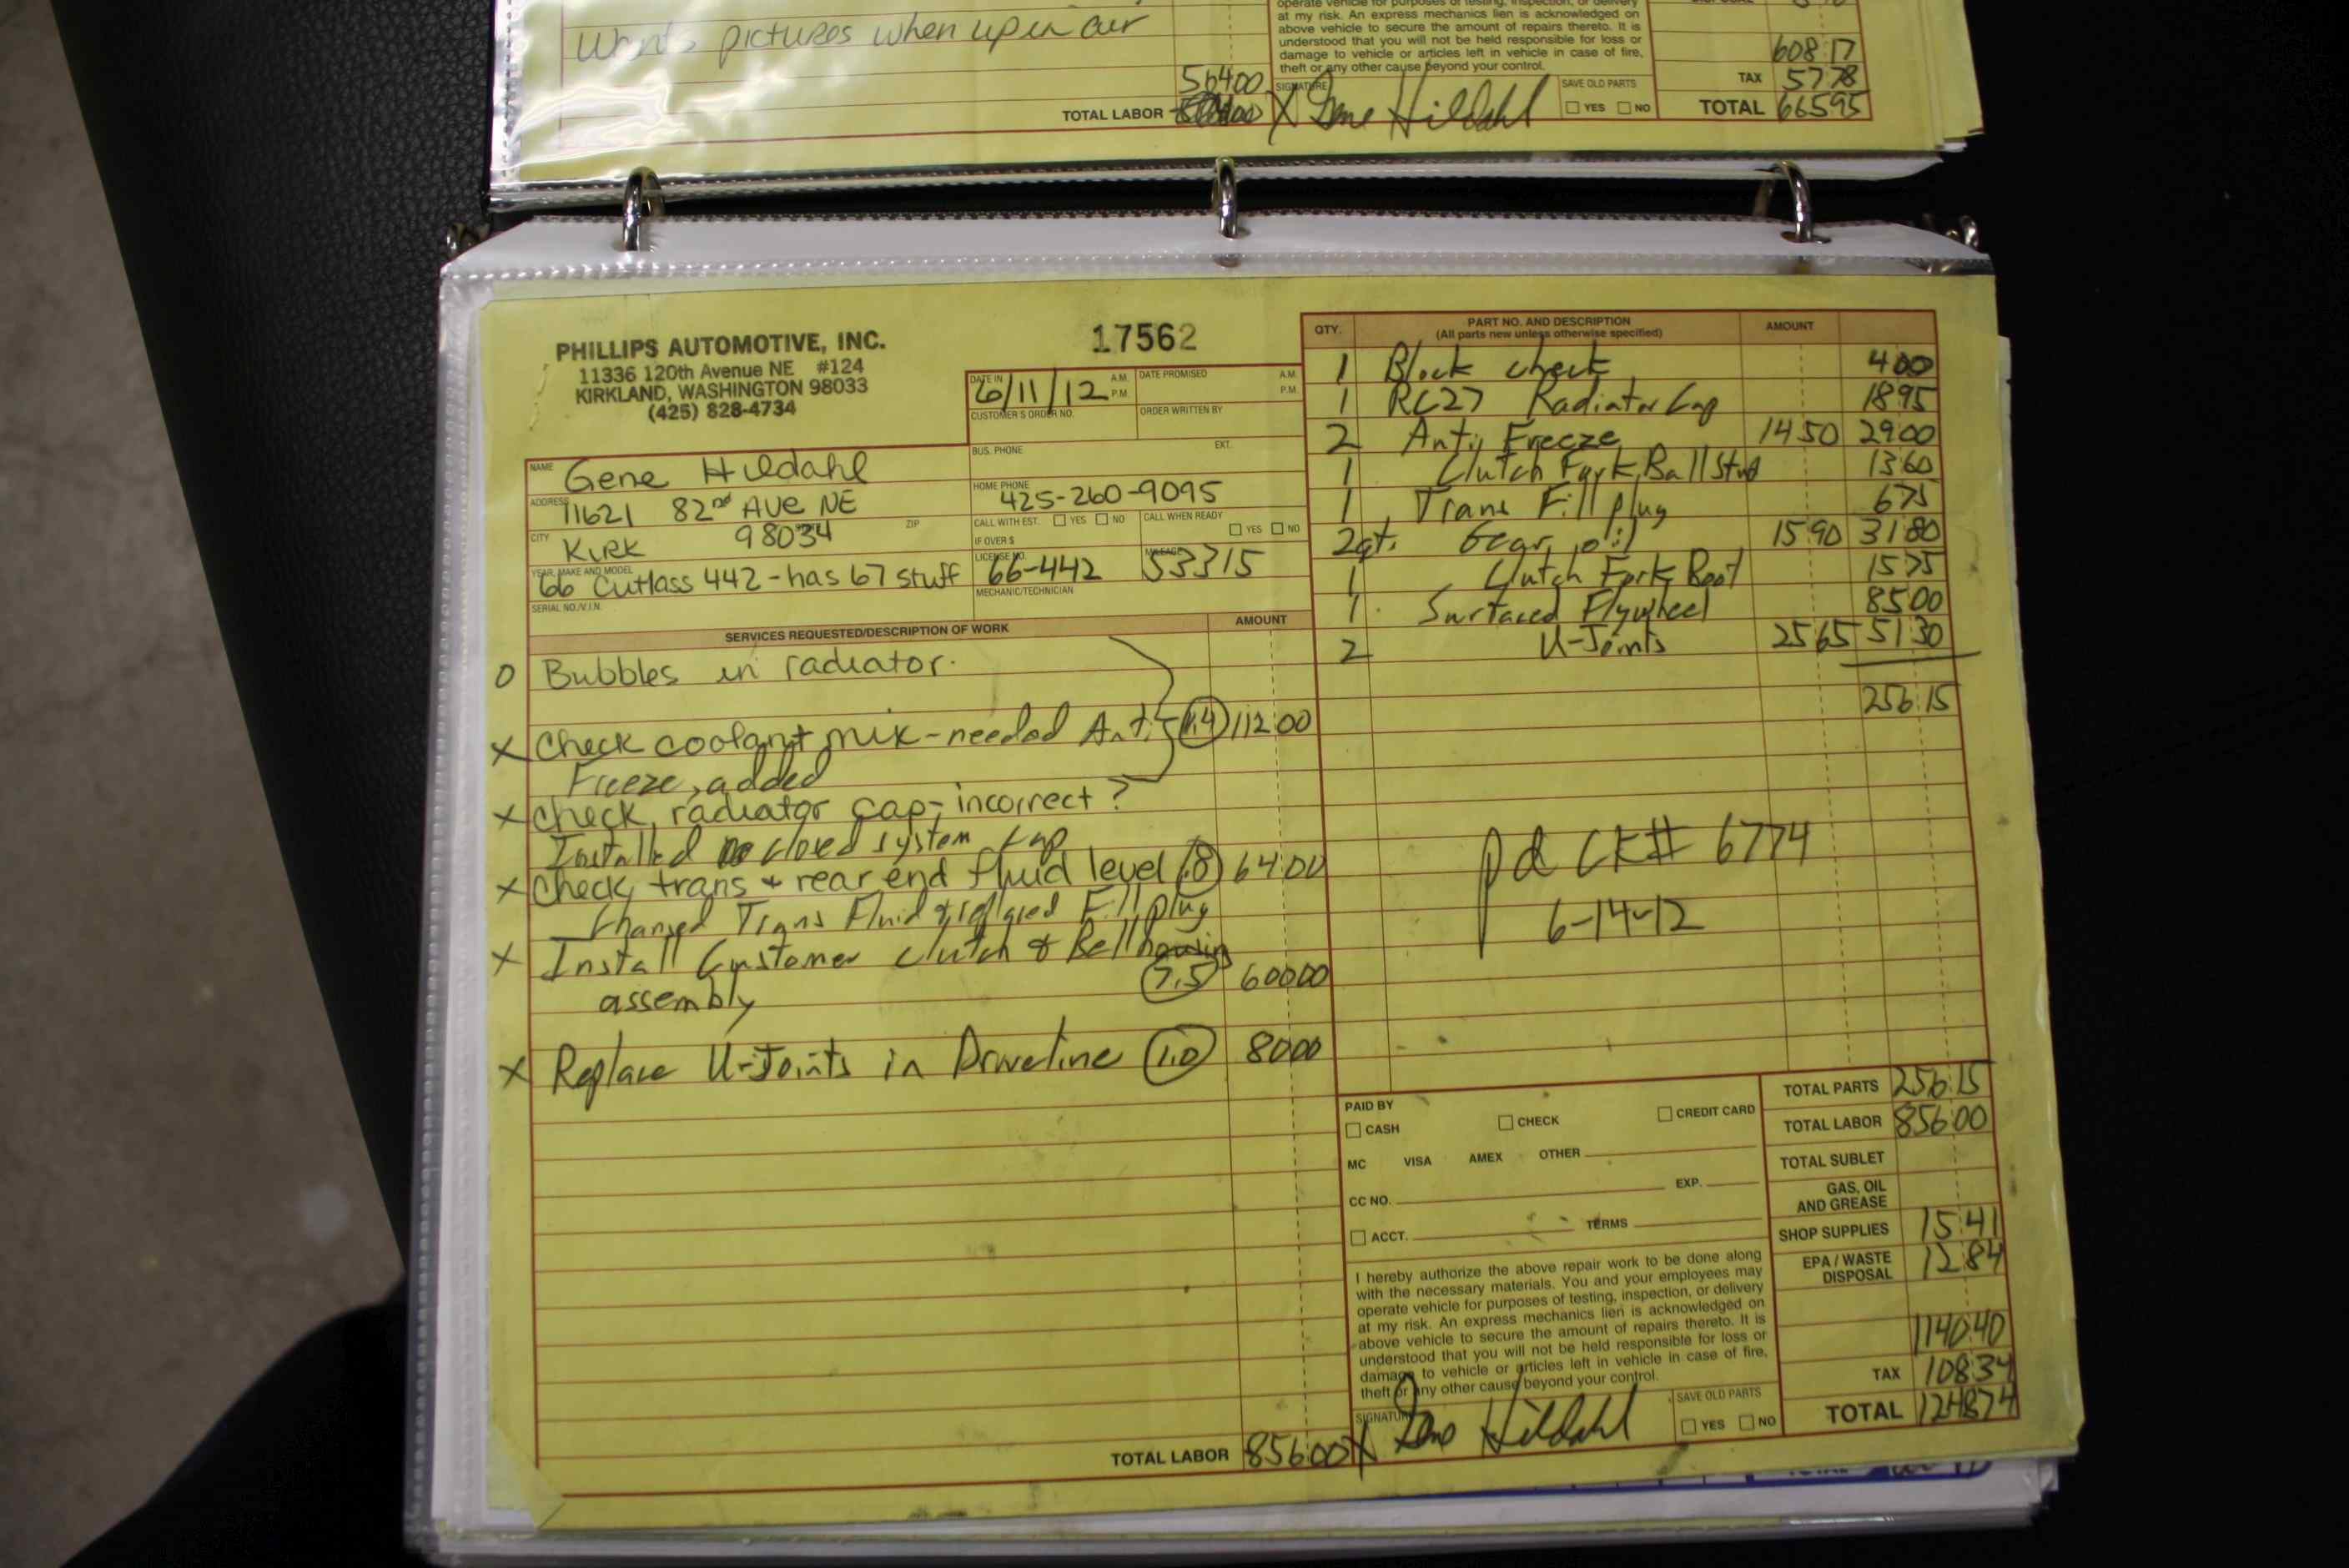 Wants pictures when up in air
operate vehicle for purposes of testing, inspection, or delivery
at my risk. An express mechanics lien is acknowledged on
above vehicle to secure the amount of repairs thereto. It is
understood that you will not be held responsible for loss or
damage to vehicle or articles left in vehicle in case of fire,
theft or any other cause beyond your control.
SIGNATURE
X Gene Hildahl
SAVE OLD PARTS
YES NO
564 00
TOTAL LABOR
608 17
TAX 57 78
TOTAL 665 95
PHILLIPS AUTOMOTIVE, INC.
11336 120th Avenue NE #124
KIRKLAND, WASHINGTON 98033
(425) 828-4734
17562
DATE IN 6/11/12 A.M. P.M.
DATE PROMISED A.M. P.M.
CUSTOMER'S ORDER NO.
ORDER WRITTEN BY
BUS. PHONE EXT.
NAME Gene Hildahl
HOME PHONE 425-260-9095
ADDRESS 11621 82nd AVE NE
CALL WITH EST. YES NO
CALL WHEN READY YES NO
CITY KIRK 98034 ZIP
IF OVER $
YEAR, MAKE AND MODEL 66 Cutlass 442 - has 67 stuff
LICENSE NO. 66-442
MILEAGE 53315
SERIAL NO./V.I.N.
MECHANIC/TECHNICIAN
SERVICES REQUESTED/DESCRIPTION OF WORK AMOUNT
O Bubbles in radiator.
X Check coolant mix - needed Anti 1.4 112 00
Freeze, added
X Check radiator cap - incorrect?
Installed closed system cap
X Check trans + rear end fluid level .8 64 00
Changed Trans Fluid & replaced Fill plug
X Install Customer Clutch & Bellhousing
assembly 7.5 600 00
X Replace U-Joints in Driveline 1.0 80 00
TOTAL LABOR 856 00
QTY. PART NO. AND DESCRIPTION AMOUNT
(All parts new unless otherwise specified)
1 Block check 4 00
1 RC27 Radiator Cap 18 95
2 Anti Freeze 14 50 29 00
1 Clutch Fork Ball Stud 13 60
1 Trans Fill plug 6 75
2qt. Gear oil 15 90 31 80
1 Clutch Fork Boot 15 75
1 Surfaced Flywheel 85 00
2 U-Joints 25 65 51 30
256 15
pd CK# 6774
6-14-12
PAID BY
CASH CHECK CREDIT CARD
MC VISA AMEX OTHER
CC NO. EXP.
ACCT. TERMS
I hereby authorize the above repair work to be done along
with the necessary materials. You and your employees may
operate vehicle for purposes of testing, inspection, or delivery
at my risk. An express mechanics lien is acknowledged on
above vehicle to secure the amount of repairs thereto. It is
understood that you will not be held responsible for loss or
damage to vehicle or articles left in vehicle in case of fire,
theft or any other cause beyond your control.
SIGNATURE
X Gene Hildahl
SAVE OLD PARTS
YES NO
TOTAL PARTS 256 15
TOTAL LABOR 856 00
TOTAL SUBLET
GAS, OIL
AND GREASE
SHOP SUPPLIES 15 41
EPA / WASTE
DISPOSAL 12 84
1140 40
TAX 108 34
TOTAL 1248 74